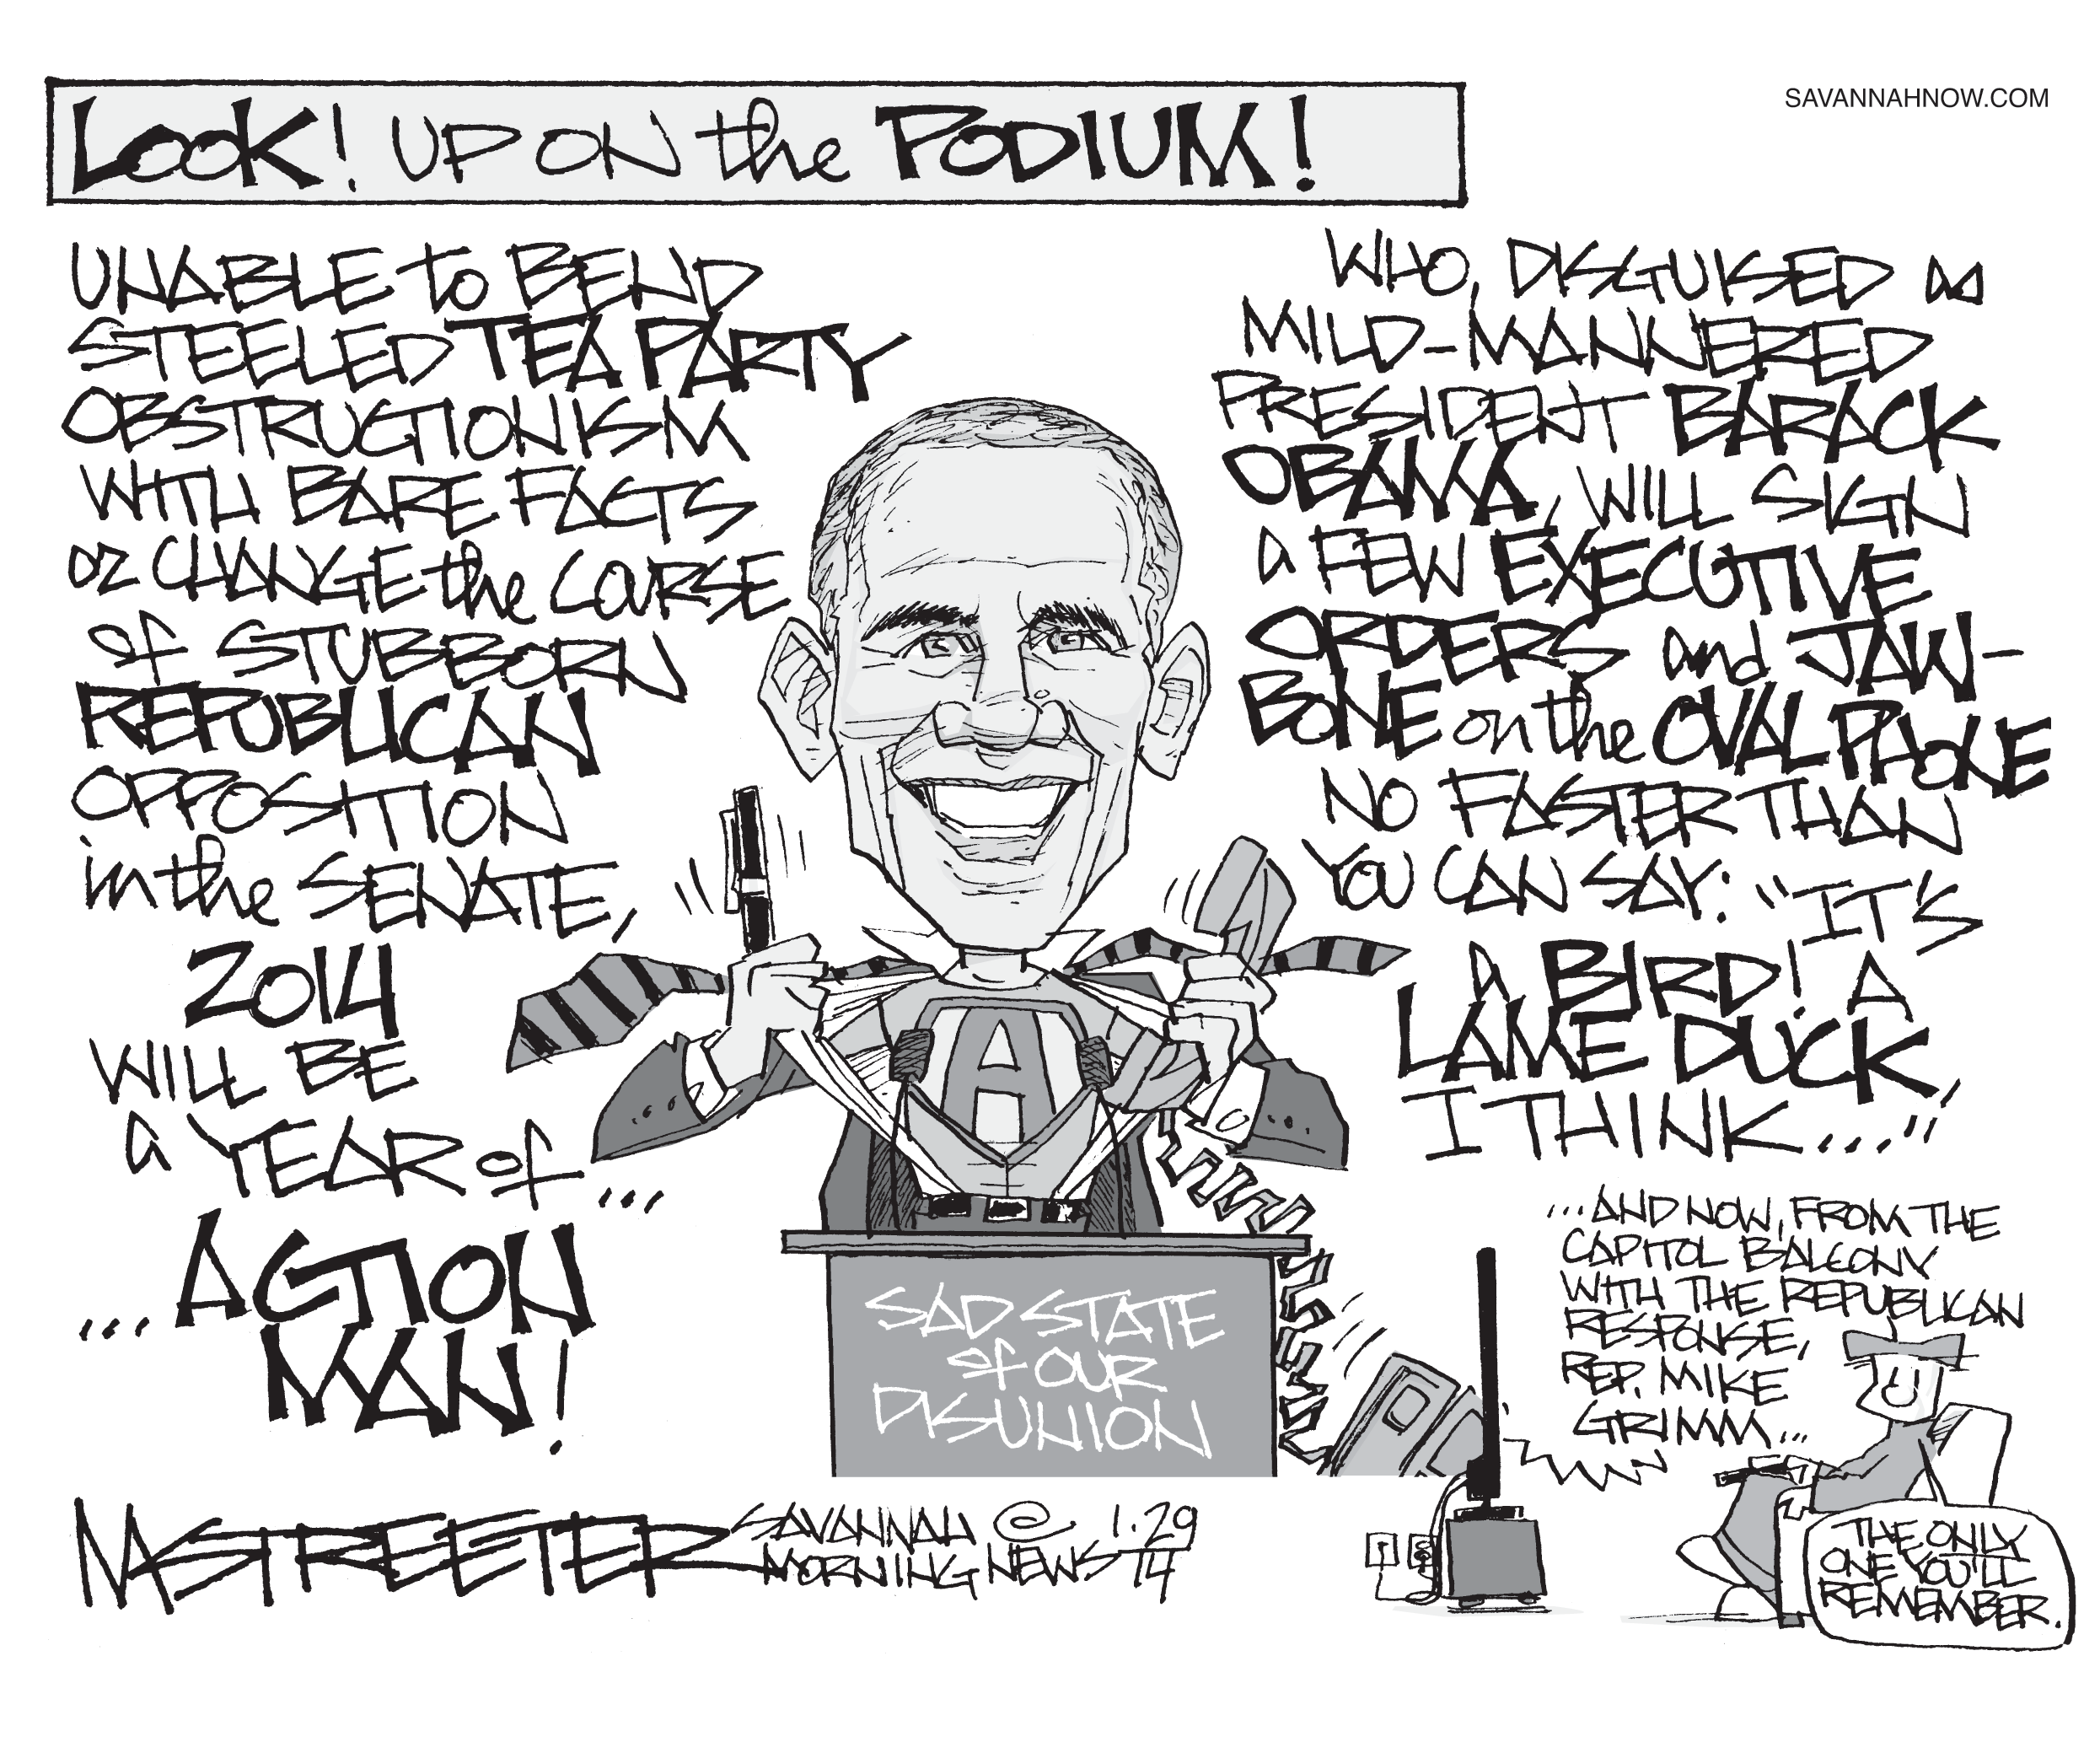 LOOK! UP ON the PODIUM!
SAVANNAHNOW.COM
UNABLE to BEND
STEELED TEA PARTY
OBSTRUCTIONISM
WITH BARE FACTS
or CHANGE the COURSE
of STUBBORN
REPUBLICAN
OPPOSITION
in the SENATE,
2014
WILL BE
a YEAR of...
...ACTION
MAN!
WHO, DISGUISED as
MILD-MANNERED
PRESIDENT BARACK
OBAMA, WILL SIGN
a FEW EXECUTIVE
ORDERS and JAW-
BONE on the OVAL PHONE
NO FASTER THAN
YOU CAN SAY: "IT'S
A BIRD! A
LAME DUCK,
I THINK..."
A
SAD STATE
of OUR
DISUNION
...AND NOW, FROM THE
CAPITOL BALCONY
WITH THE REPUBLICAN
RESPONSE,
REP. MIKE
GRIMM...
THE ONLY
ONE YOU'LL
REMEMBER.
MSTREETER
SAVANNAH © 1.29
MORNING NEWS 14